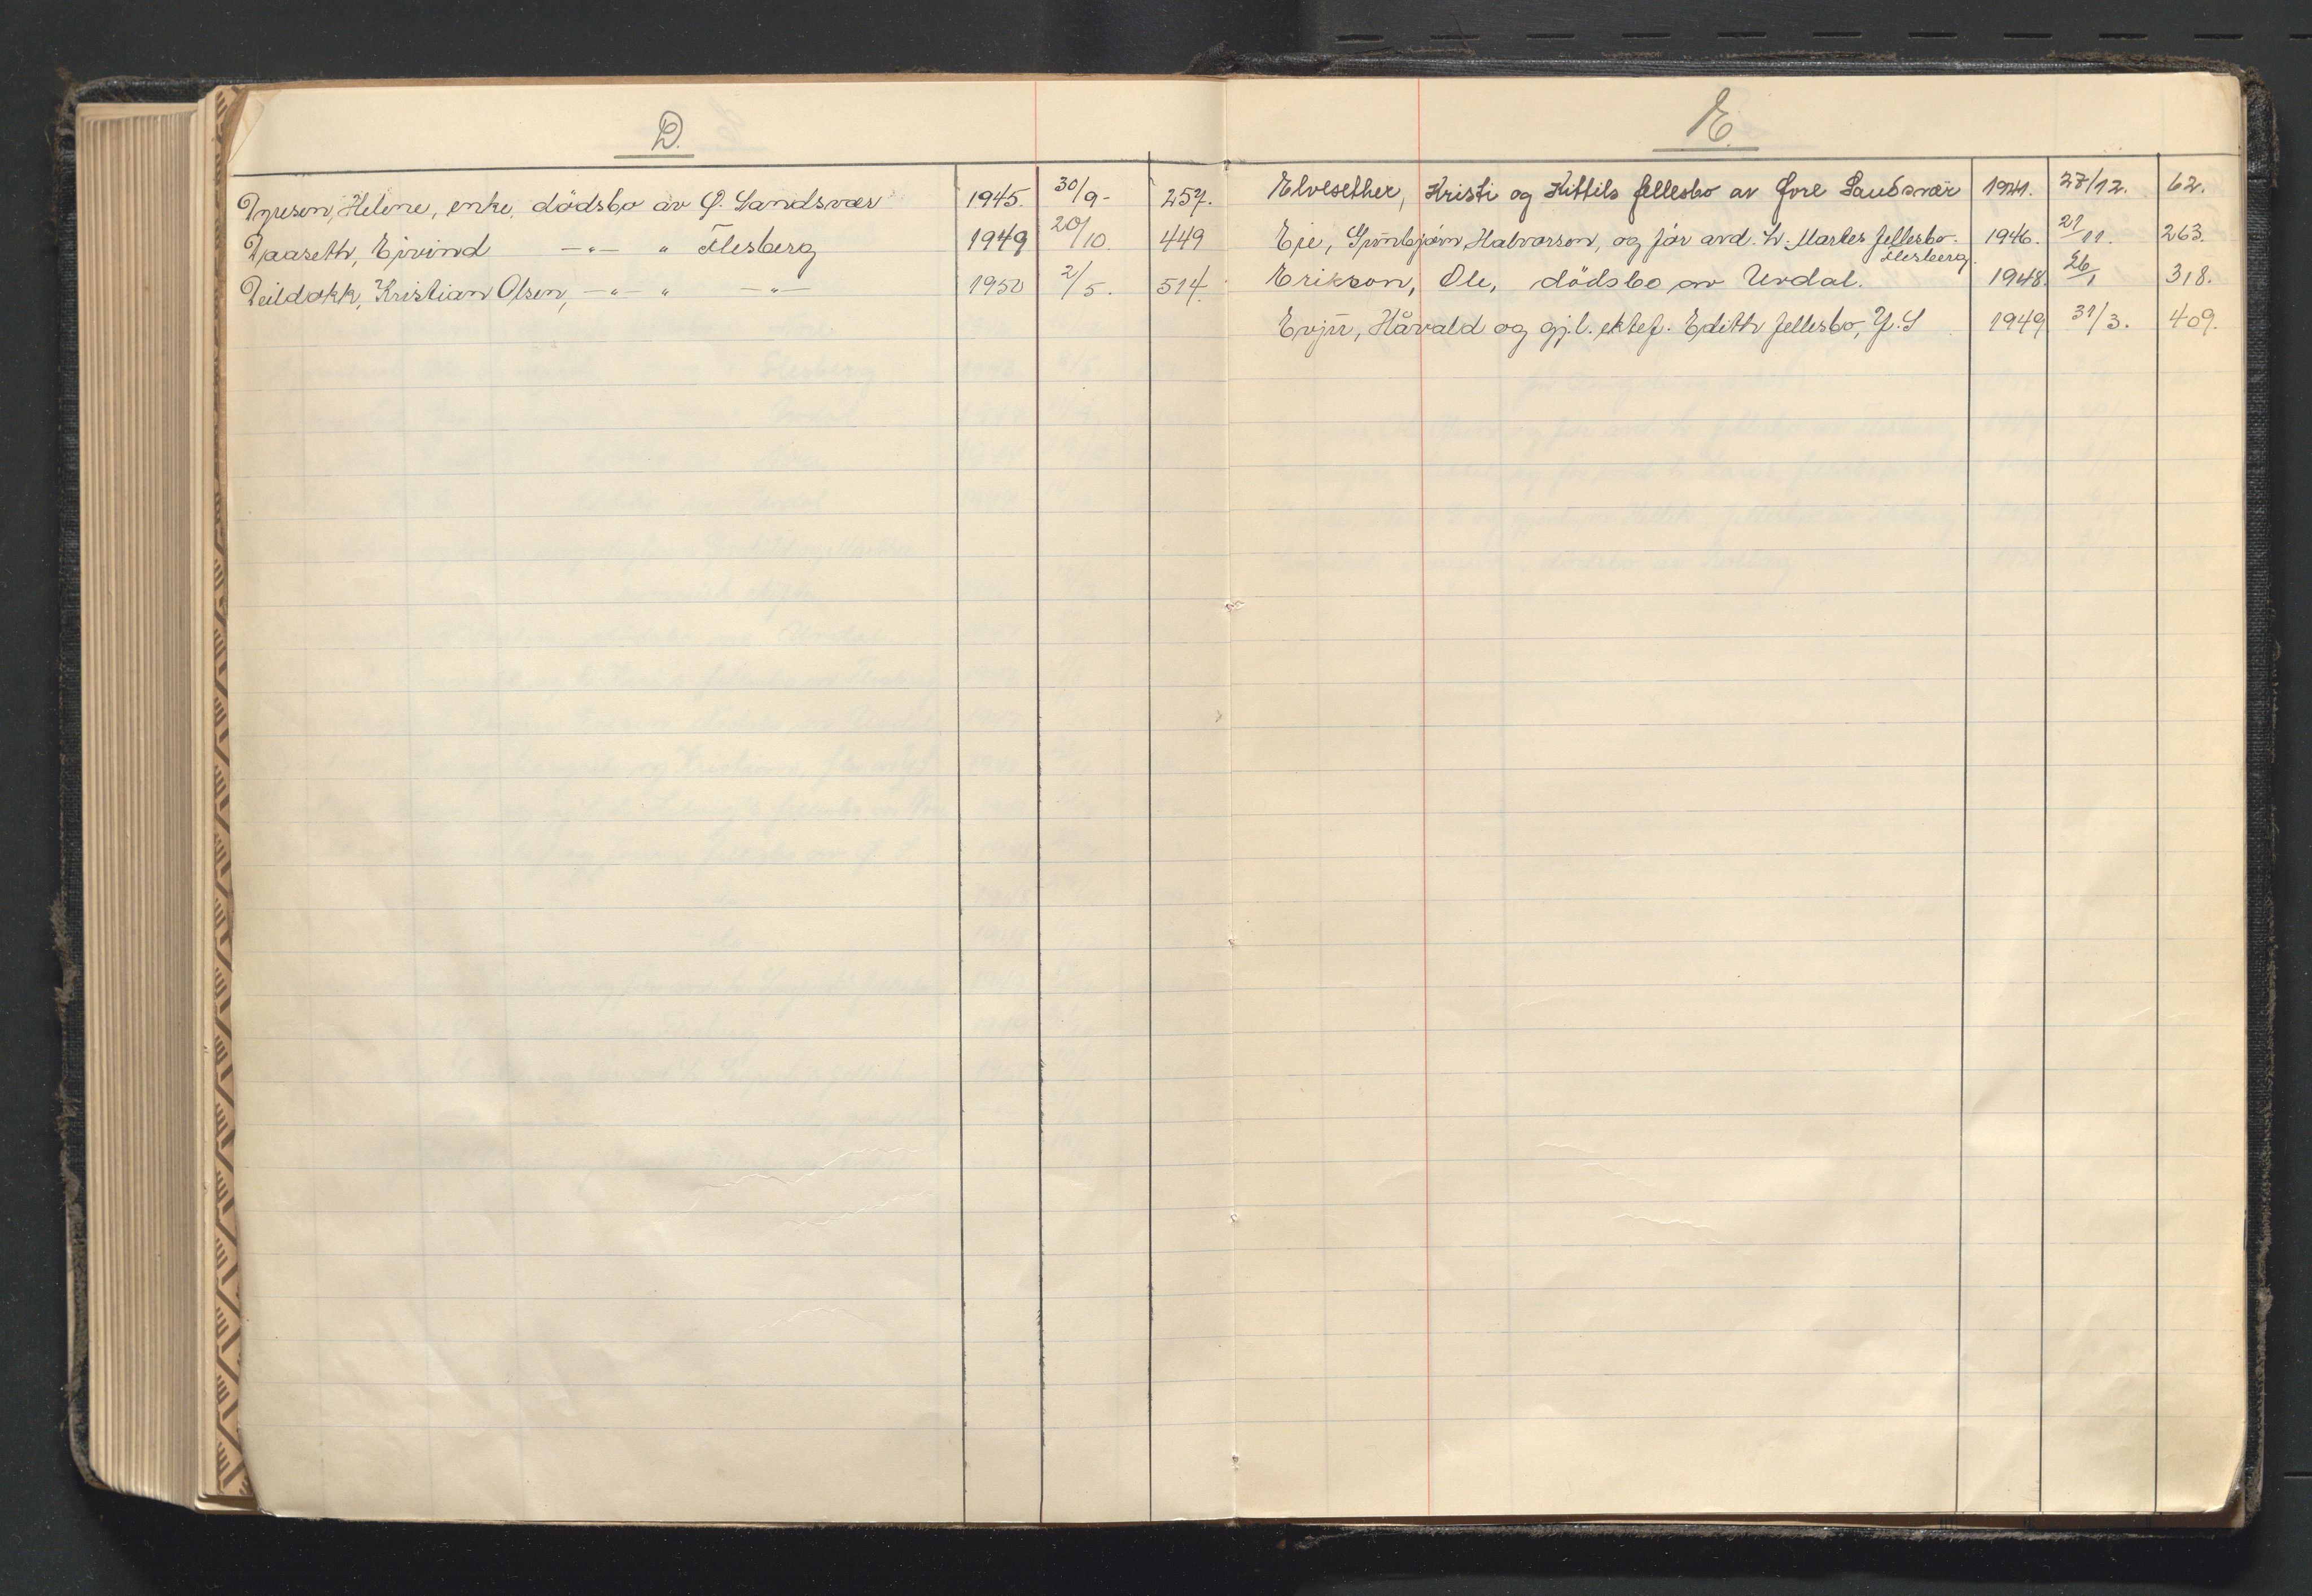 D.
Dyresen, Helene, enke, dödsbo av Ø. Sandsvær 1945. 30/9- 257.
Daaseth, Eivind —"— " Flesberg 1949 20/10. 449
Deildokk, Kristian Olsen, —"— " —"— 1950 2/5. 514.
E.
Elvesether, Kristi og Kittils fellesbo av Øvre Sandsvær 1941. 27/12. 62.
Eie, Gunbjörn Halvorsen, og för avd. h. Martes fellesbo. 1946. 21/11. 263.
Flesberg.
Erikson, Ole, dödsbo av Uvdal. 1948. 26/1 318.
Evju, Håvald og gj.l. ektef. Edith fellesbo, Y.S 1949 31/3. 409.